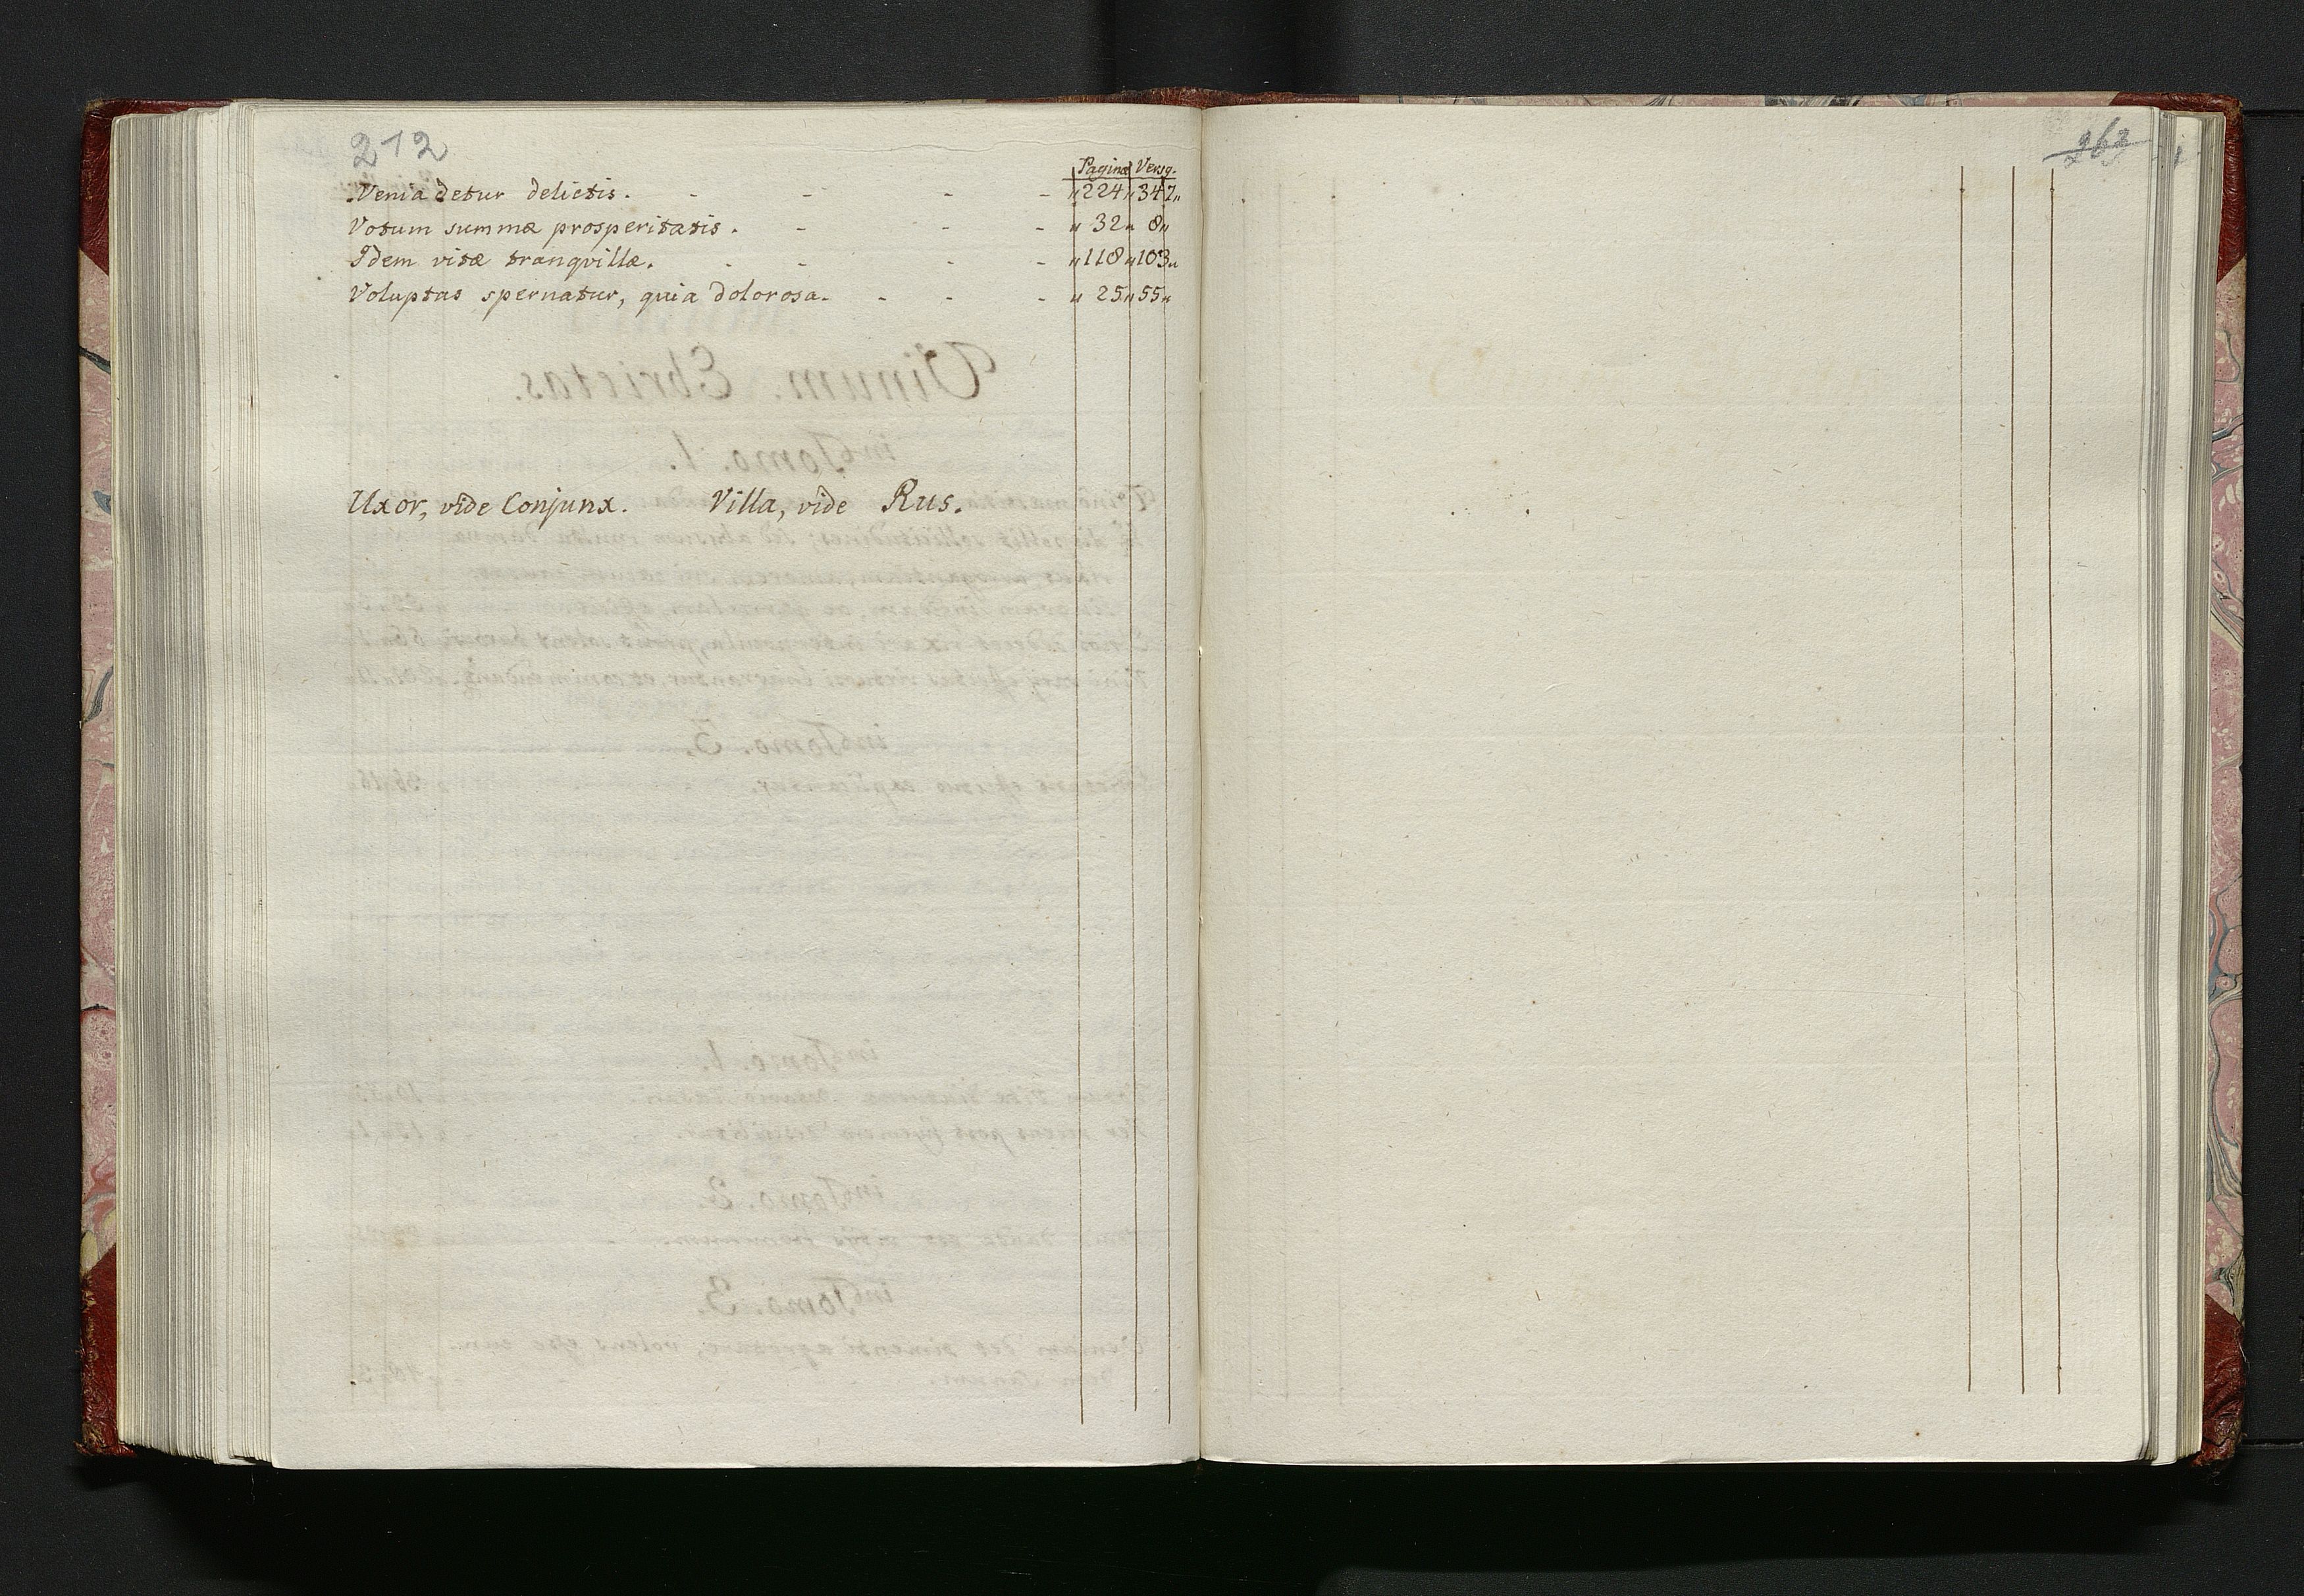 212
Paginæ Versq.
Venia detur delictis. - - - - " 224 " 347 "
Votum summæ prosperitatis. - - - " 32 " 8 "
Idem vitæ tranqvillæ. - - - - " 118 " 103 "
Voluptas spernatur, quia dolorosa. - - - " 25 " 55 "
Uxor, vide Conjunx. Villa, vide Rus.